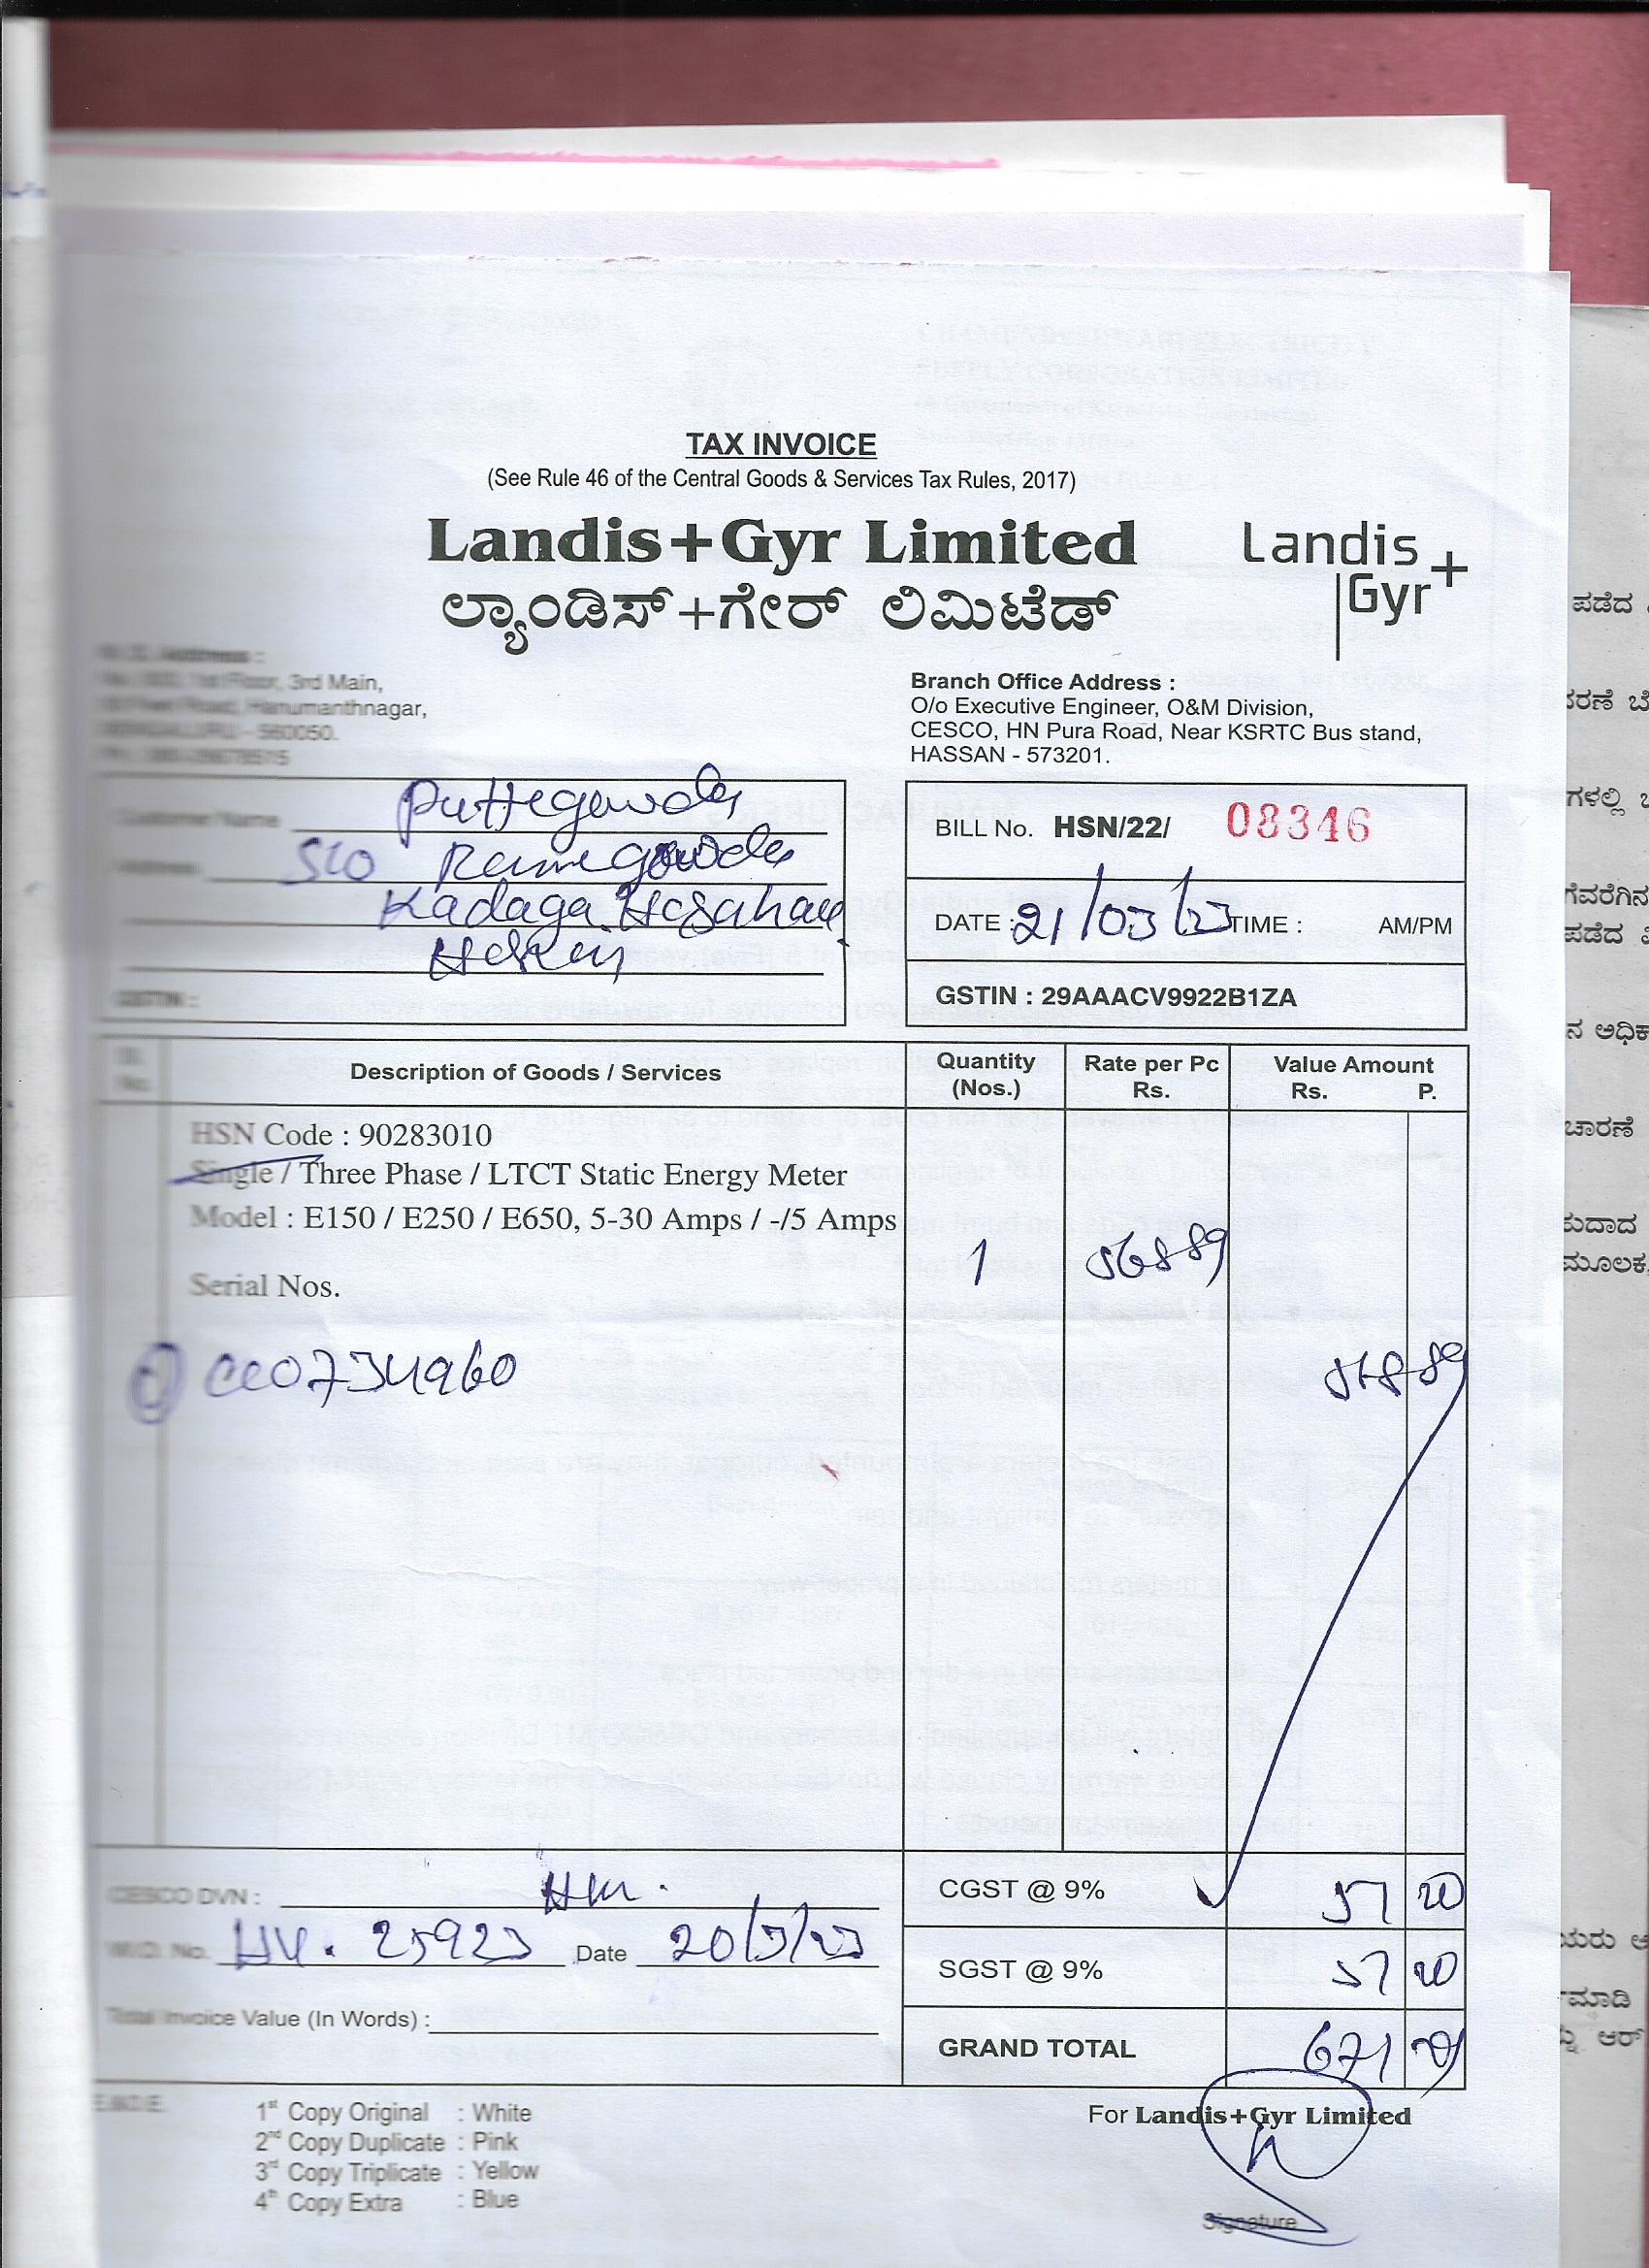 TAX INVOICE
(See Rule 46 of the Central Goods & Services Tax Rules, 2017)
Landis+Gyr Limited
ಲ್ಯಾಂಡಿಸ್+ಗೇರ್ ಲಿಮಿಟೆಡ್
Landis+
Gyr
Address :
1st Floor, 3rd Main,
Road, Hanumanthnagar,
- 560050.
Branch Office Address :
O/o Executive Engineer, O&M Division,
CESCO, HN Pura Road, Near KSRTC Bus stand,
HASSAN - 573201.
Customer Name Puttegowda
Address S/O Ramegowda
Kadaga
GSTIN :
BILL No. HSN/22/ 08346
DATE : 21/03/23 TIME : AM/PM
GSTIN : 29AAACV9922B1ZA
Sl. No.
Description of Goods / Services
Quantity (Nos.)
Rate per Pc Rs.
Value Amount Rs. P.
HSN Code : 90283010
Single / Three Phase / LTCT Static Energy Meter
Model : E150 / E250 / E650, 5-30 Amps / -/5 Amps
1
Serial Nos.
CESCO DVN :
W.O. No. Date 20/3/23
Total Invoice Value (In Words) :
CGST @ 9% 57 20
SGST @ 9% 57 20
GRAND TOTAL 671
E.&O.E.
1st Copy Original : White
2nd Copy Duplicate : Pink
3rd Copy Triplicate : Yellow
4th Copy Extra : Blue
For Landis+Gyr Limited
Signature
ಪಡೆದ
ಪಡೆದ
ಮೂಲಕ,